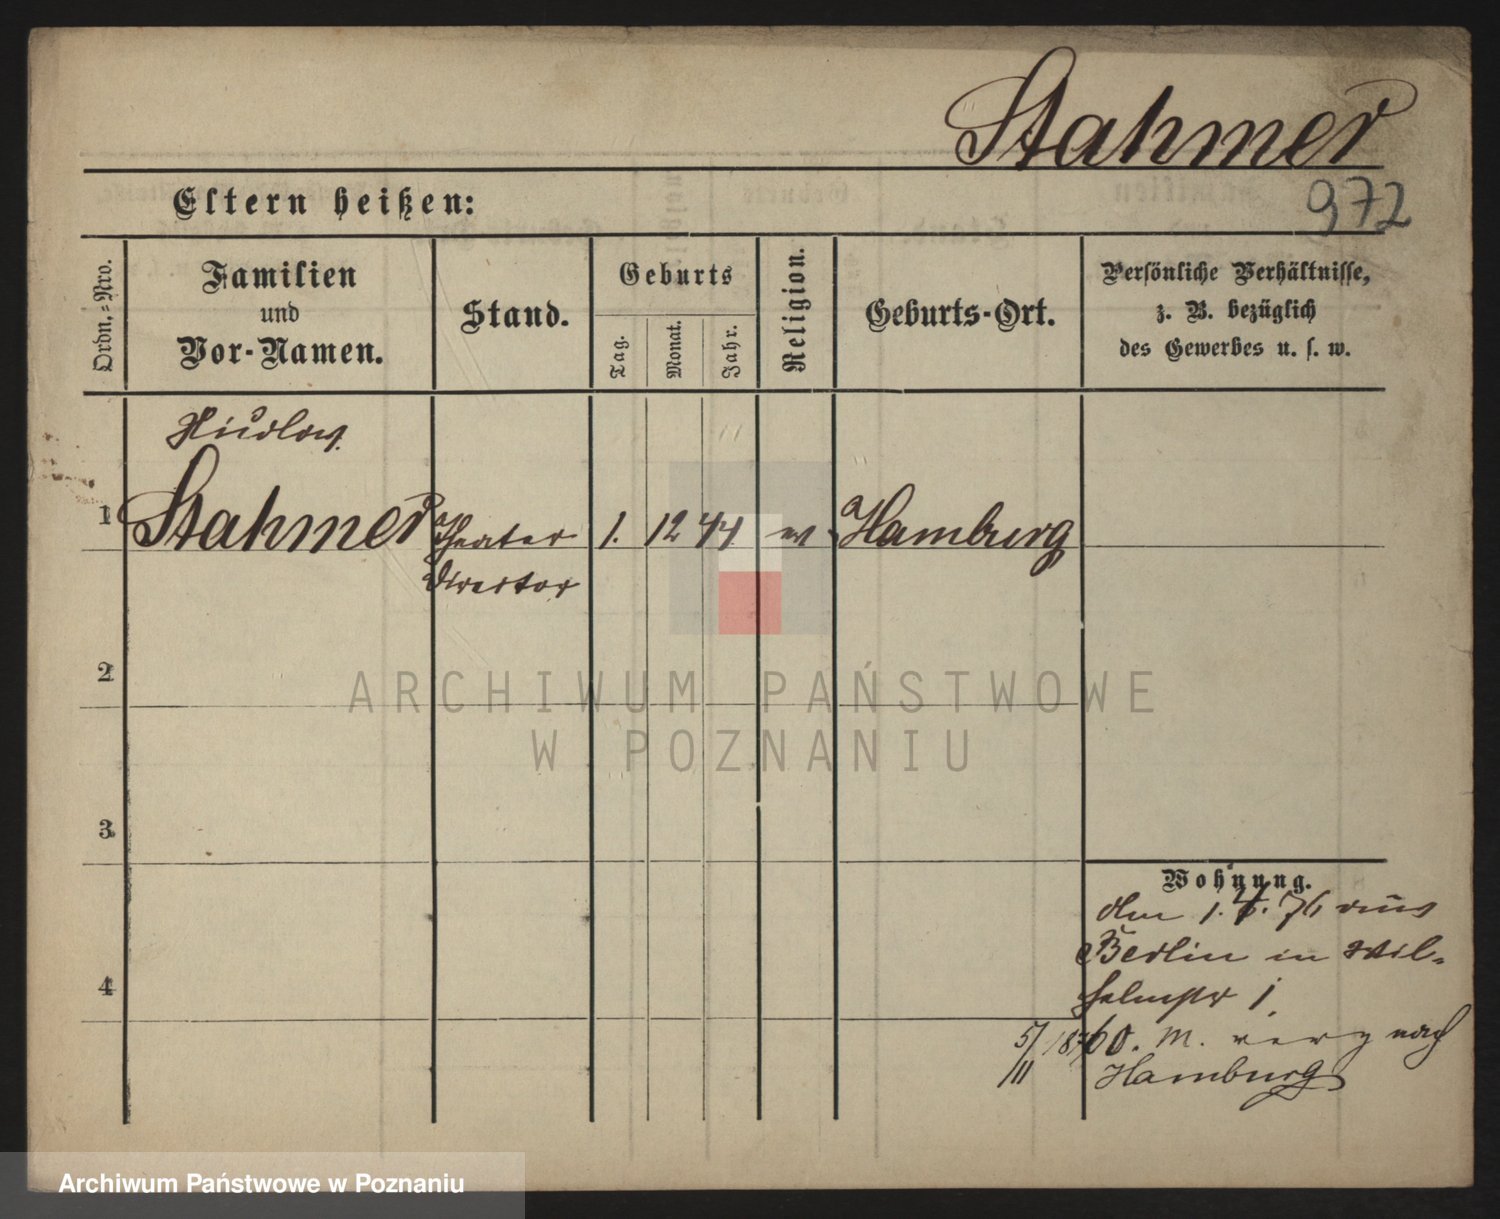 Stahmer
972
Eltern heißen:
Ordn.-Nro.
Familien
und
Vor-Namen.
Stand.
Geburts
Tag.
Monat.
Jahr.
Religion.
Geburts-Ort.
Persönliche Verhältnisse,
z. B. bezüglich
des Gewerbes u. s. w.
1 Stahmer Theater 1. 12 44 Hamburg
Director
2
3
4
Wohnung.
den 1. 4. 76 aus
Berlin in Wil-
helmstr 1
5/11 1876 verz nach
Hamburg
ARCHIWUM PAŃSTWOWE
W POZNANIU
Archiwum Państwowe w Poznaniu